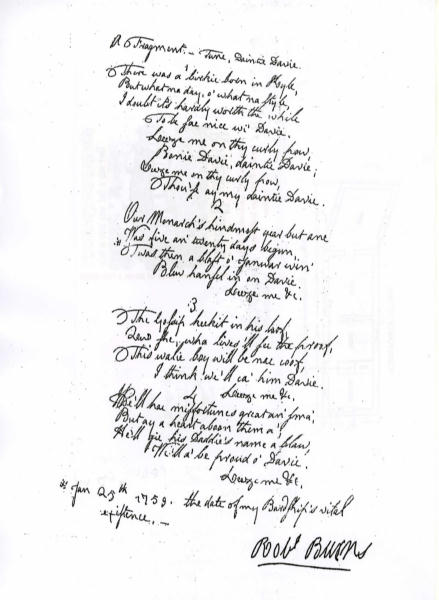 A Fragment — Tune, Daintie Davie.
There was a birkie born in Kyle,
But what na day, o' what na style,
I doubt it's hardly worth the while
To be sae nice wi' Davie.
Leeze me on thy curly pow,
Bonie Davie, daintie Davie;
Leeze me on thy curly pow,
Thou'se ay my daintie Davie.
2
Our Monarch's hindmost year but ane
Was five an' twenty days begun,
* 'Twas then a blast o' Janwar win'
Blew hansel in on Davie.
Leeze me &c.
3
The Gossip keekit in his loof,
Quo' she, wha lives'll see the proof,
This walie boy will be nae coof,
I think we'll ca' him Davie.
Leeze me &c.
4
He'll hae misfortunes great an' sma',
But ay a heart aboon them a';
He'll gie his Daddie's name a blaw,
We'll a' be proud o' Davie.
Leeze me &c.
* Jan 25th 1759. the date of my Bardship's vital
existence. —
Robt Burns